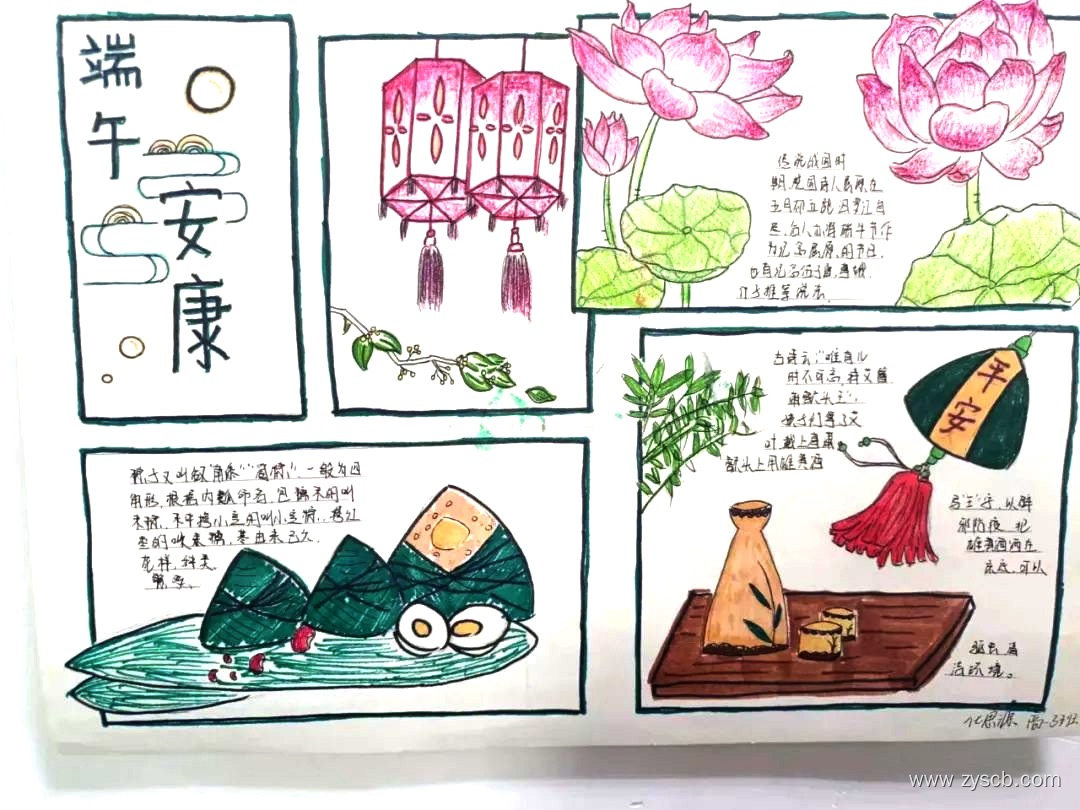 端
午
安
康
传说战国时
期,楚国诗人屈原在
五月初五跳汨罗江自
尽,后人亦将端午节作
为纪念屈原的节日
也有纪念伍子胥、曹娥
介子推等说法.
粽子又叫做"角黍""筒粽",一般为四
角形,根据内瓤命名,包糯米的叫
米粽,米中掺小豆的叫小豆粽,掺红
枣的叫枣粽,其由来已久
花样,种类
繁多.
古诗云:"唯有儿
时不可忘,持艾簪
蒲额头王",
孩子们拿了艾
叶戴上菖蒲
额头上用雄黄酒
写"王"字,以辟
邪防疫,把
雄黄酒洒在
床底,可以
驱虫,
洁环境。
平
安
www.zyscb.com